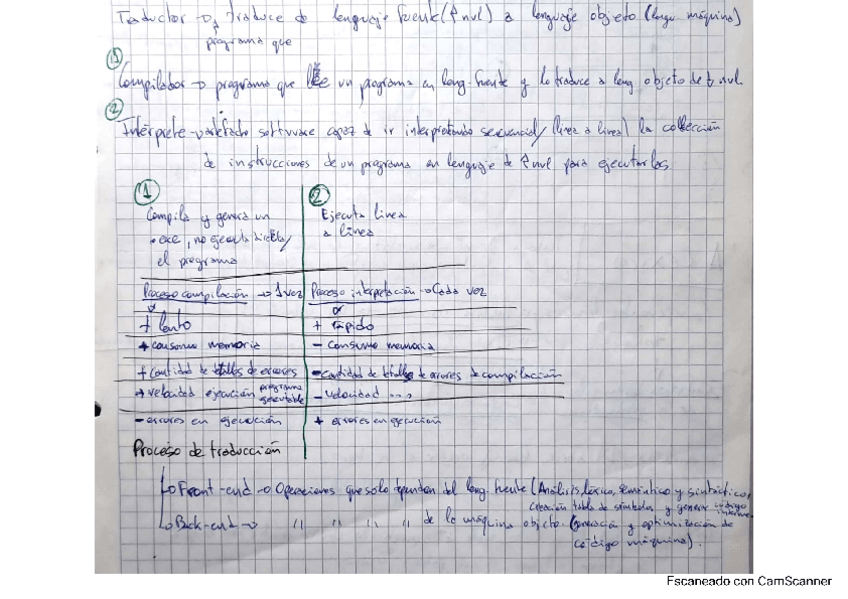 Traductor → Traduce de lenguaje fuente (↑ nvl) a lenguaje objeto (leng. máquina)
programa que
①
Compilador → programa que lee un programa en leng. fuente y lo traduce a leng objeto de ↓ nvl.
②
Intérprete software capaz de ir interpretando secuencial/ (línea a línea) la colección
de instrucciones de un programa en lenguaje de ↑ nvl para ejecutarlas.
① ②
Compila y genera un
.exe, no ejecuta directa/
el programa
Ejecuta línea
a línea
Proceso compilación → 1 vez Proceso interpretación → Cada vez
+ lento + rápido
+ consumo memoria - Consumo memoria
+ Cantidad de detalles de errores - Cantidad de detalles de errores de compilación
+ velocidad ejecución programa ejecutable - Velocidad ...
- errores en ejecución + errores en ejecución
Proceso de traducción
Front-end → Operaciones que sólo dependen del leng. fuente (Análisis léxico, semántico y sintáctico,
creación tabla de símbolos y generar código
Back-end → " " " " de la máquina objeto. (generación y optimización de
código máquina).
Escaneado con CamScanner